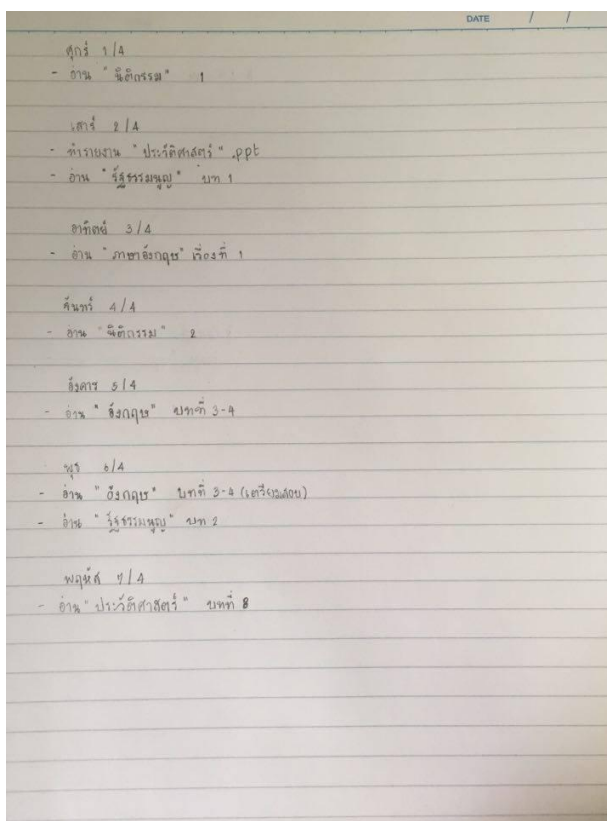 DATE / /
ศุกร์ 1/4
- อ่าน "นิติกรรม" 1
เสาร์ 2/4
- ทำรายงาน "ประวัติศาสตร์" .ppt
- อ่าน "รัฐธรรมนูญ" บท 1
อาทิตย์ 3/4
- อ่าน "ภาษาอังกฤษ" เรื่องที่ 1
จันทร์ 4/4
- อ่าน "นิติกรรม" 2
อังคาร 5/4
- อ่าน "อังกฤษ" บทที่ 3-4
พุธ 6/4
- อ่าน "อังกฤษ" บทที่ 3-4 (เตรียมสอบ)
- อ่าน "รัฐธรรมนูญ" บท 2
พฤหัส 7/4
- อ่าน "ประวัติศาสตร์" บทที่ 8